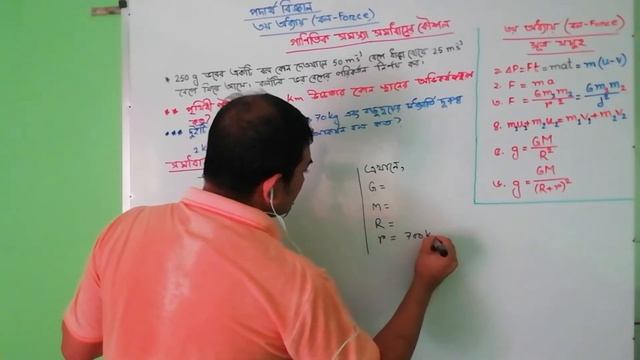 পদার্থ বিজ্ঞান
৩য় অধ্যায় (বল-Force)
গাণিতিক সমস্যা সমাধানের কৌশল
* 250 g ভরের একটি বল কোন দেওয়ালে 50 ms⁻¹ বেগে ধাক্কা খেয়ে 25 ms⁻¹
বেগে ফিরে আসে। বলটির ভর বেগের পরিবর্তন নির্ণয় কর।
** পৃথিবী km উচ্চতায় কোন স্থানের অভিকর্ষজ
কত?
*** দুইটি 70 kg এবং মধ্যবর্তী দূরত্ব
2 k আকর্ষণ বল কত?
এখানে,
G =
M =
R =
r = 700 k
৩য় অধ্যায় (বল-Force)
সূত্র সমূহ
= ΔP = Ft = mat = m(u-v)
2. F = ma
৩. F = Gm₁m₂/r² = Gm₁m₂/d²
৪. m₁u₁+m₂u₂ = m₁v₁+m₂v₂
৫. g = GM/R²
৬. g = GM/(R+r)²